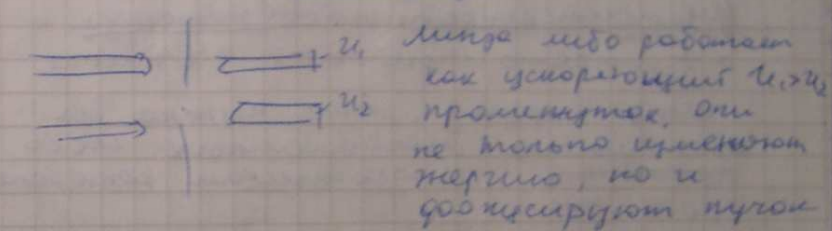 u₁ Линза либо работает
как ускоряющий u₁>u₂
u₂ промежуток, они
не только изменяют
энергию, но и
фокусируют пучок